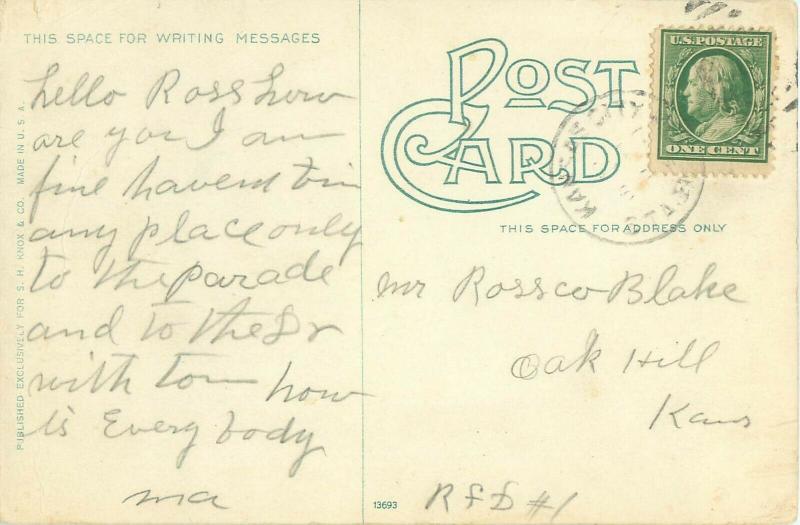 THIS SPACE FOR WRITING MESSAGES
hello Ross how
are you I am
fine havent bin
any place only
to the parade
and to the Dr
with tom how
is Every body
ma
PUBLISHED EXCLUSIVELY FOR S. H. KNOX & CO. MADE IN U. S. A.
POST
CARD
U.S. POSTAGE
ONE CENT
THIS SPACE FOR ADDRESS ONLY
mr Rossco Blake
Oak Hill
Kans
RFD #1
13693